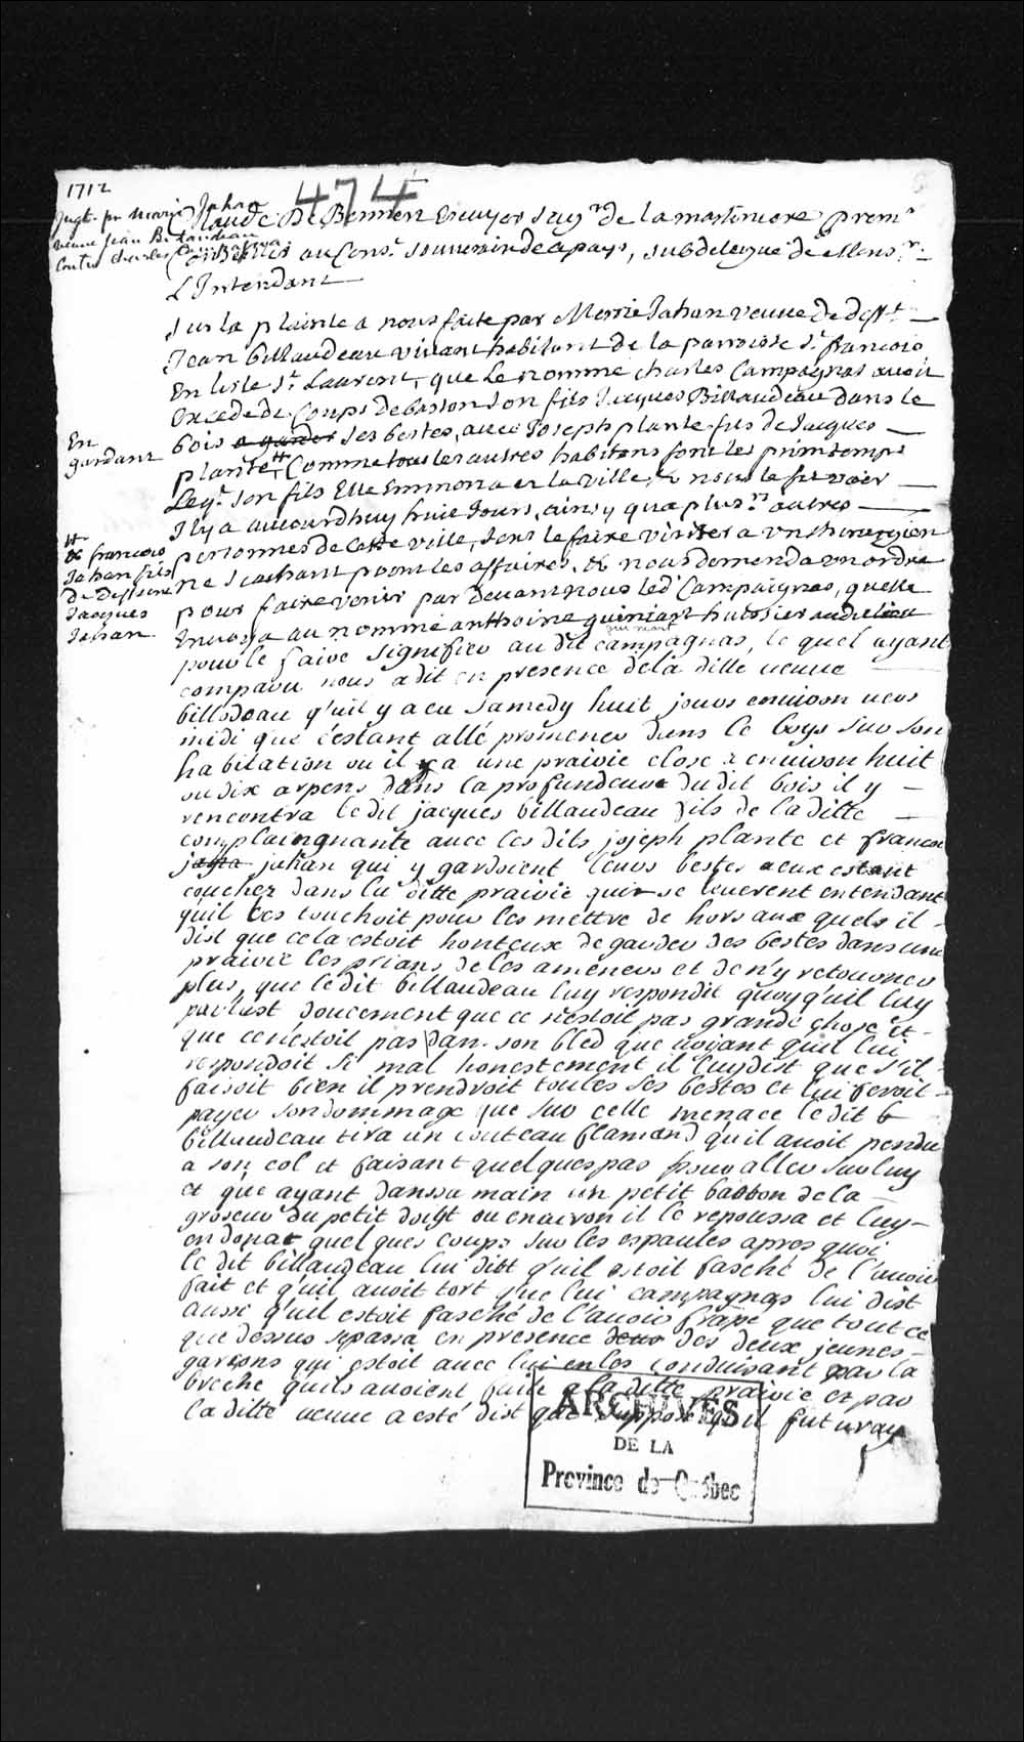 1712
474
Jugt. pr marie Jahan
veuve Jean Bilaudeau
Contre charles Campagnas
Claude De Bermen Escuyer Seigr. de la martiniere premr.
Coner au Consl. souverain de ce pays, subdelegué de Monsr.
L'Intendant
Sur la plainte a nous faite par Marie Jahan veuve de defft.
Jean billaudeau vivant habitant de la parroisse St. francois
En lisle St. Laurent, que Le nommé charles Campagnas avoit
Excedé de Coups de baston son fils Jacques Billaudeau dans le
En
gardant
bois a garder ses bestes, avec Joseph plante fils de Jacques
plante, Comme tous les autres habitans font les printemps
Leql. son fils Elle Emmena en la ville, & nous le fit voir
Il y a aujourdhuy huit Jours, ainsy qu'a plusrs. autres
& francois
Jahan fils
de deffunt
Jacques
Jahan
personnes de Cette ville, sans le faire visiter a un chirurgien
ne scachant point les affaires, & nous demenda un ordre
pour faire venir par devant nous led. Campaignas, quelle
Envoya au nommé anthoine quiniart huissier audit lieu
quiniart
pour le faire signifier au dit campagnas, le quel ayant
comparu nous a dit en presence de la ditte veuve
billodeau q'uil y a eu samedy huit jours environ vers
midi que s'estant allé promener dans le boys sur son
habitation ou il y a une prairie close a environ huit
ou dix arpens dans la profundeur du dit bois il y
rencontra ledit jacques billaudeau fils de la ditte
complaingnante avec les dits joseph plante et francois
jahan qui y gardoient leurs bestes eux estant
couchez dans la ditte prairie qui se leverent entendant
quil les touchoit pour les mettre de hors aux quels il
dist que cela estoit honteux de garder des bestes dans une
prairie les prians de les amener et de n'y retourner
plus, que ledit billaudeau luy respondit quoy q'uil luy
parlast doucement que ce n'estoit pas grande chose et
que ce n'estoit pas dan son bled que voyant quil lui
respondoit si mal honestement il luy dist que s'il
faisoit bien il prendroit toutes ses bestes et lui feroit
payer son dommage que sur celle menace le dit b
billaudeau tira un couteau flamand q'uil avoit pendu
a son col et faisant quelques pas pour aller sur luy
et que ayant dans sa main un petit baston de la
groseur du petit doigt ou environ il le repoussa et luy
en dona quelques coups sur les espaules apres quoi
le dit billaudeau lui dist q'uil estoit fasché de l'avoir
fait et q'uil avoit tort que lui campagnas lui dist
aussi q'uil estoit fasché de l'avoir frapé que tout ce
que dessus se passa en presence deux des deux jeunes
garsons qui estoit avec lui en les conduisant par la
breche quils avoient faite a la ditte prairie et par
la ditte veuve a esté dist que supposé q'uil fut vray
ARCHIVES
DE LA
Province de Québec